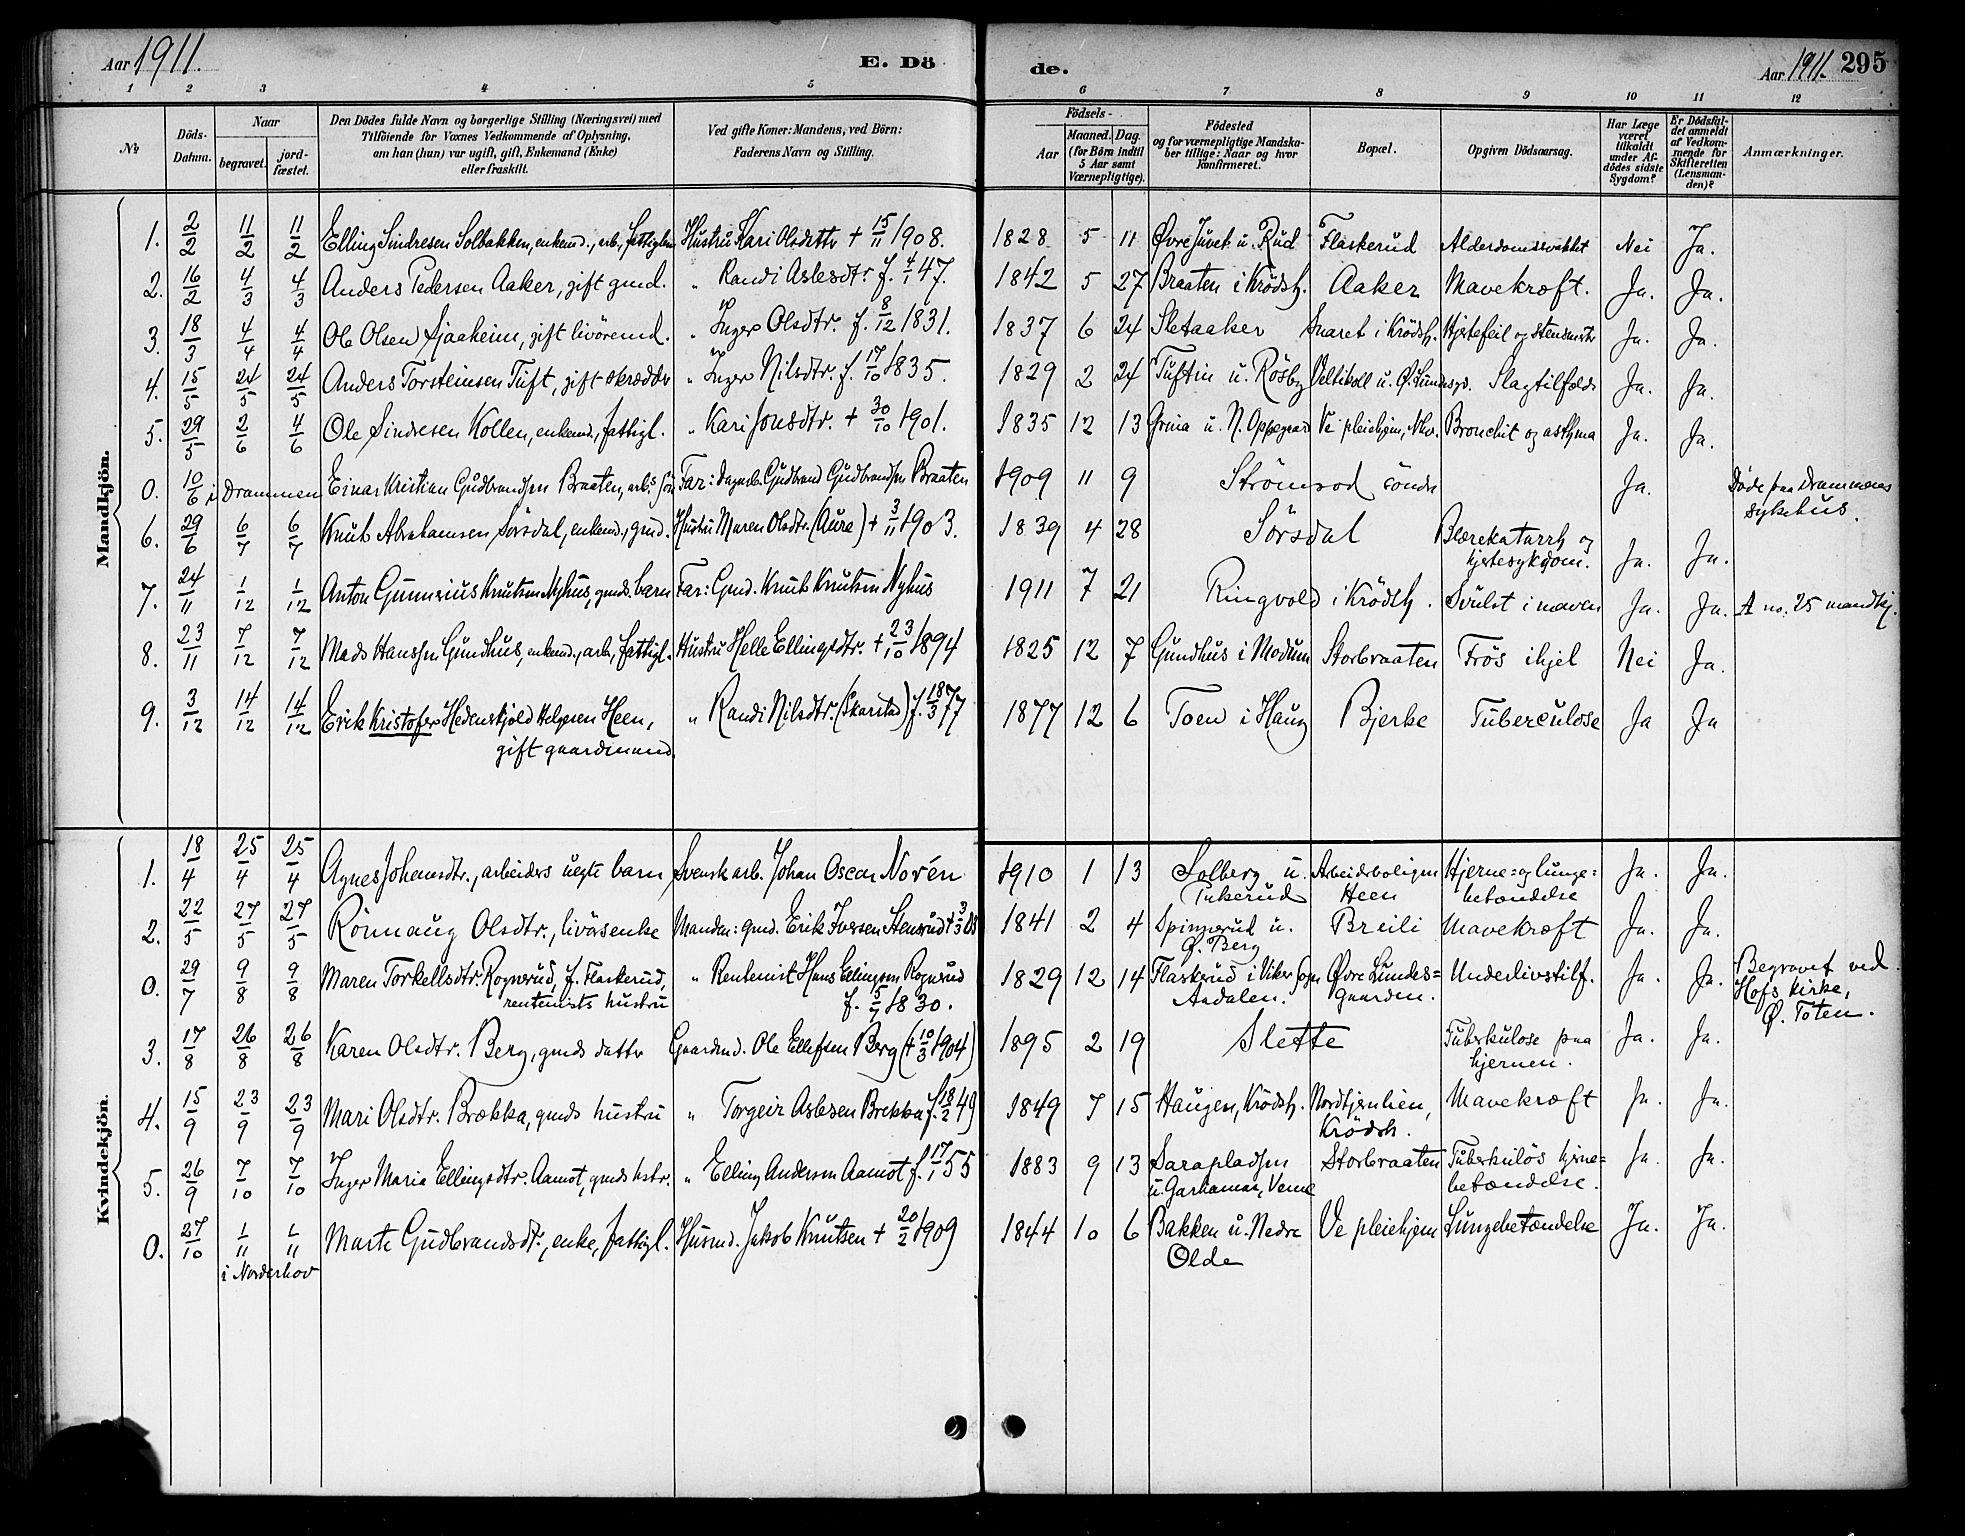 Aar 1911. E. Dö
de. Aar 1911. 295
1 2 3 4 5 6 7 8 9 10 11 12
No
Döds-Datum.
Naar
begravet.
jord-fæstet.
Den Dödes fulde Navn og borgerlige Stilling (Næringsvei) med
Tilföiende for Voxnes Vedkommende af Oplysning,
om han (hun) var ugift, gift, Enkemand (Enke)
eller fraskilt.
Ved gifte Koner: Mandens, ved Börn:
Faderens Navn og Stilling.
Födsels-
Aar
Maaned. Dag.
(for Börn indtil
5 Aar samt
Værnepligtige).
Födested
og for værnepligtige Mandska-
ber tillige: Naar og hvor
konfirmeret.
Bopæl.
Opgiven Dödsaarsag.
Har Læge
været
tilkaldt
under Af-
dödes sidste
Sygdom?
Er Dödsfal-
det anmeldt
af Vedkom-
mende for
Skifteretten
(Lensman-
den)?
Anmærkninger.
Mandkjön.
1. 2/2 11/2 11/2 Elling Sindresen Solbakken, enkem., arb., fattiglem Hustru Kari Olsdatter + 15/11 1908. 1828 5 11 Øvre Juvet u. Rud Flaskerud Alderdomssvakket Nei Ja.
2. 16/2 4/3 4/3 Anders Pedersen Aaker, gift gmd. " Randi Aslesdtr. f. 4/1 47. 1842 5 27 Braaten i Krödsh. Aaker Mavekræft. Ja. Ja.
3. 18/3 4/4 4/4 Ole Olsen Sjaaheim, gift livöremd. " Inger Olsdtr. f. 8/12 1831. 1837 6 24 Sletaaker Snaret i Krödsh. Hjertefeil og Ja. Ja.
4. 15/5 24/5 24/5 Anders Torsteinsen Tuft, gift skrædder " Inger Nilsdtr. f. 17/10 1835. 1829 2 24 Tuftin u. Rösby Veltikoll u. Ø. Lundesgd. Slagtilfælde Ja. Ja.
5. 29/5 2/6 4/6 Ole Sindresen Kollen, enkemd., fattigl. " Kari Jonsdtr. + 30/10 1901. 1835 12 13 Grina u. N. Oppegaard Ve pleiehjem, Nhov. Bronchit og asthma Ja. Ja.
0. 10/6 i Drammen Einar Kristian Gudbrandsen Braaten, arb.s sön Far: Dagarb. Gudbrand Gudbrandsen Braaten 1909 11 9 Strömsod söndre Ja. Döde paa Drammens
sykehus.
6. 29/6 6/7 6/7 Knut Abrahamsen Sörsdal, enkemd., gmd. Hustru Maren Olsdtr. (Aure) + 3/11 1903. 1839 4 28 Sörsdal Blærekatarrh og
hjertesykdom. Ja. Ja.
7. 24/11 1/12 1/12 Anton Gunnerius Knutsen Nyhus, gmds. barn Far: Gmd. Knut Knutsen Nyhus 1911 7 21 Ringvold i Krödsh. Svulst i maven Ja. Ja. A no. 25 mandkj.
8. 23/11 7/12 7/12 Mads Hansen Gundhus, enkemd., arb., fattigl. Hustru Helle Ellingsdtr. + 23/10 1894 1825 12 7 Gundhus i Modum Storbraaten Frös ihjel Nei Ja.
9. 3/12 14/12 14/12 Erik Kristofer Hedenskjold Helgesen Heen,
gift gaardmand. " Randi Nilsdtr. (Skarstad) f. 18/3 1877 1877 12 6 Toen i Haug Bjerke Tuberculose Ja Ja
Kvindekjön.
1. 18/4 25/4 25/4 Agnes Johansdtr., arbeiders uegte barn Svensk arb. Johan Oscar Norén 1910 1 13 Solberg u.
Tukerud Arbeidsboligen
Heen Hjerne= og lunge=
betændelse Ja. Ja.
2. 22/5 27/5 27/5 Rönnaug Olsdtr., livörsenke Manden: gmd. Erik Iversen Stensrud + 3/3 1841 2 4 Spinnerud u.
Ø. Berg Breili Mavekræft Ja. Ja.
0. 29/7 9/8 9/8 Maren Torkellsdtr. Rognerud, f. Flaskerud,
rentenists hustru " Rentenist Hans Ellingsen Rognerud
f. 5/7 1830. 1829 12 14 Flaskerud i Viker Sogn
Aadalen. Øvre Lundes=
gaarden. Underlivstilf. Ja. Ja. Begravet ved
Hofs kirke,
Ø. Toten.
3. 17/8 26/8 26/8 Karen Olsdtr. Berg, gmds datter Gaardmd. Ole Ellefsen Berg (+ 10/3 1904) 1895 2 19 Slette Tuberkulose paa
hjernen. Ja. Ja.
4. 15/9 23/9 23/9 Mari Olsdtr. Brækka, gmds hustru " Torgeir Aslesen Brekka f. 18/2 49 1849 7 15 Haugen, Krödsh. Nordtjernlien,
Krödsh. Mavekræft Ja. Ja.
5. 26/9 7/10 7/10 Inger Maria Ellingsdtr. Aamot, gmds hstr. " Elling Andersen Aamot f. 17/1 55 1883 9 13 Sarapladsen
u. Garhamar, Veme Storbraaten Tuberkulös hjerne=
betændelse. Ja. Ja.
0. 27/10 1/11 1/11 Marte Gudbrandsdtr., enke, fattigl. Husmd. Jakob Knutsen + 20/2 1909 1844 10 6 Bakken u. Nedre
Olde Ve pleiehjem Lungebetændelse Ja. Ja.
i Norderhov